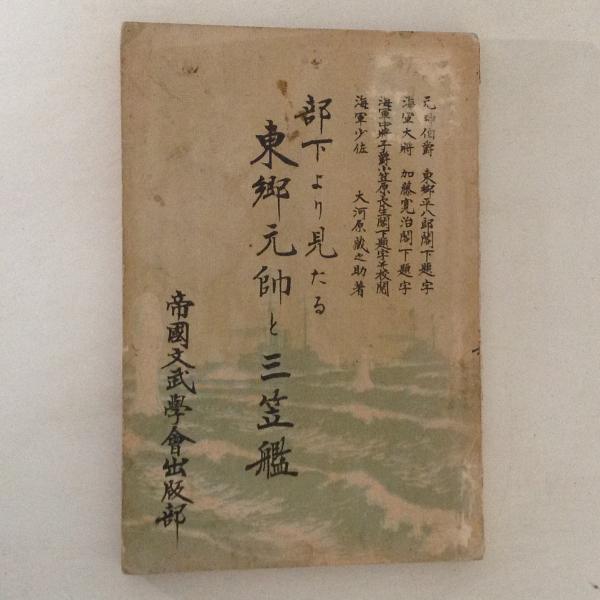 元帥伯爵 東郷平八郎閣下題字
海軍大將 加藤寛治閣下題字
海軍中將子爵小笠原長生閣下題字並校閲
海軍少佐 大河原蔵之助著
部下より見たる
東郷元帥と三笠艦
帝國文武學會出版部